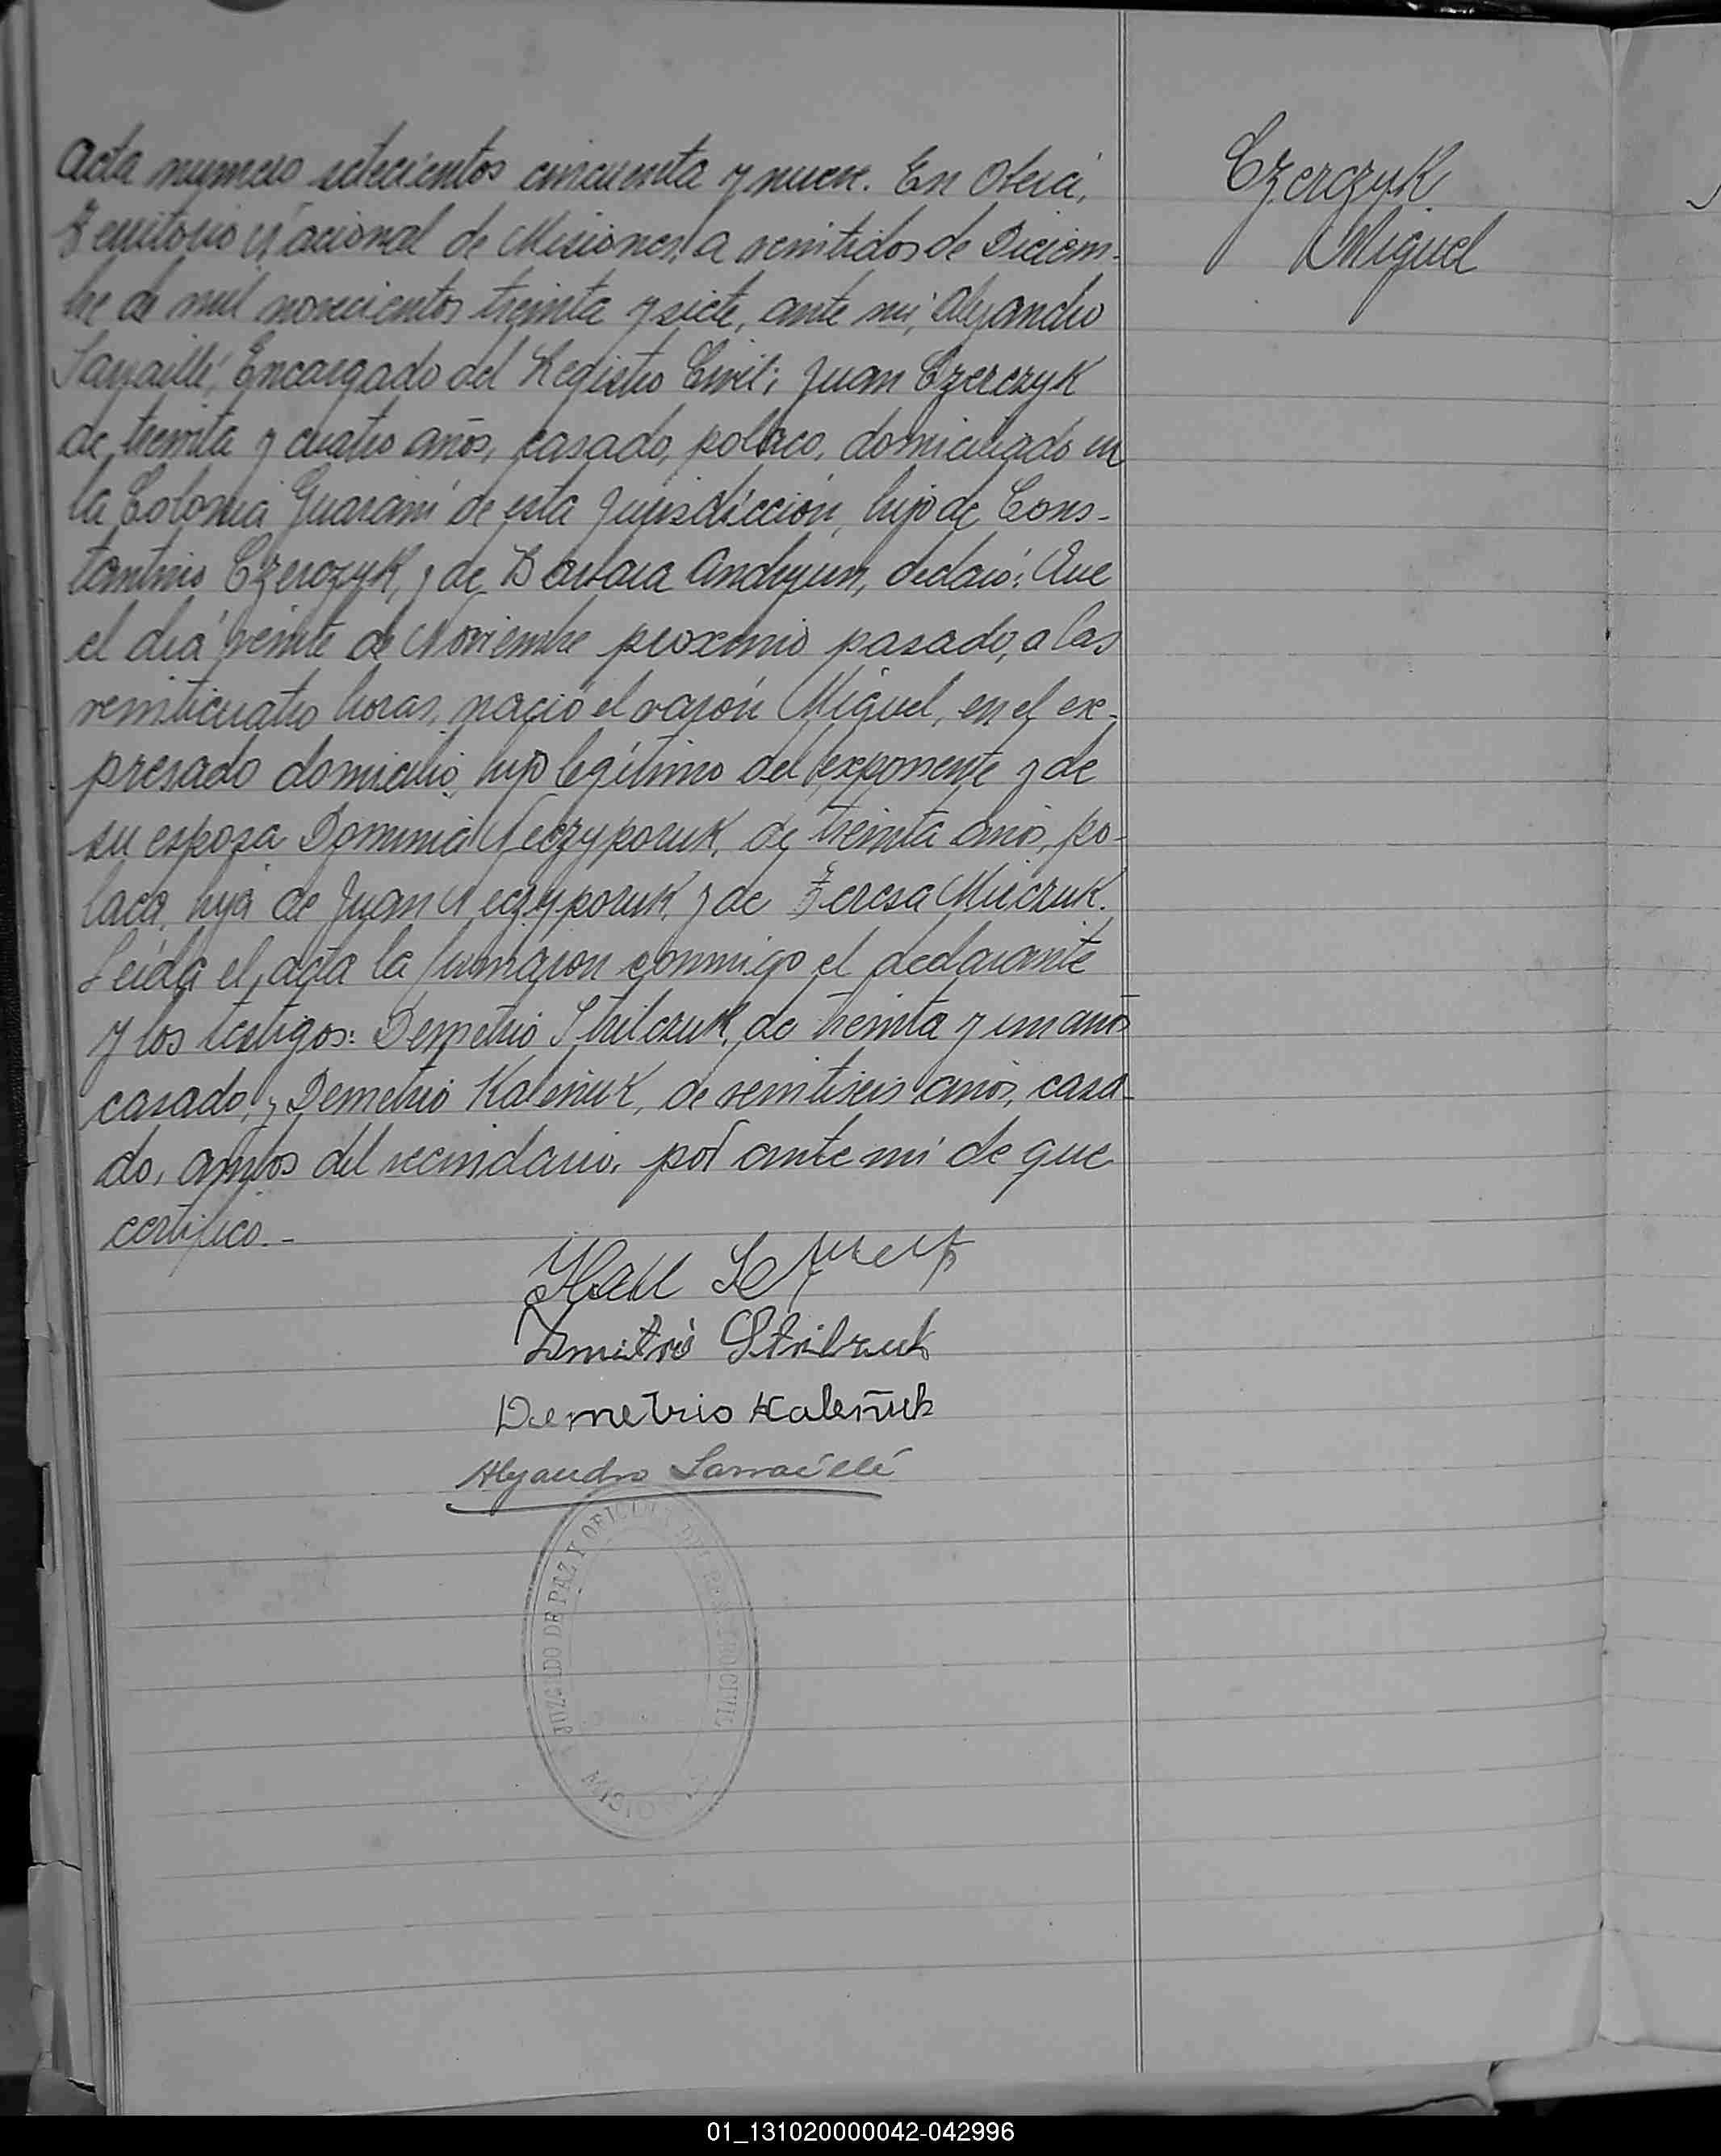 Acta numero setecientos cincuenta y nueve. En Oberá,
Territorio Nacional de Misiones, a veintidos de Diciem-
bre de mil novecientos treinta y siete, ante mi, Alejandro
Encargado del Registro Civil; Juan Czerczyk
de treinta y cuatro años, casado, polaco, domiciliado en
la Colonia Guaraní de esta Jurisdicción, hijo de Cons-
tantino Czerczyk, y de Barbara declaró: Que
el día veinte de Noviembre proximo pasado, a las
veinticuatro horas, nació el varón Miguel, en el ex-
presado domicilio, hijo legítimo del exponente y de
su esposa Domma Neczyporuk, de treinta años, po-
laca, hija de Juan Neczyporuk, y de Teresa
Leída el acta la firmaron conmigo el declarante
y los testigos: Demetrio Strilczuk, de treinta y un años
casado, y Demetrio Kaleñuk, de veintiseis años, casa-
do, ambos del vecindario, por ante mi de que
certifico.-
Czerczyk
Miguel
Dmitro
Demetrio Kaleñuk
Alejandro
JUZGADO DE PAZ Y OFICINA DEL REGISTRO CIVIL
MISIONES
01_131020000042-042996